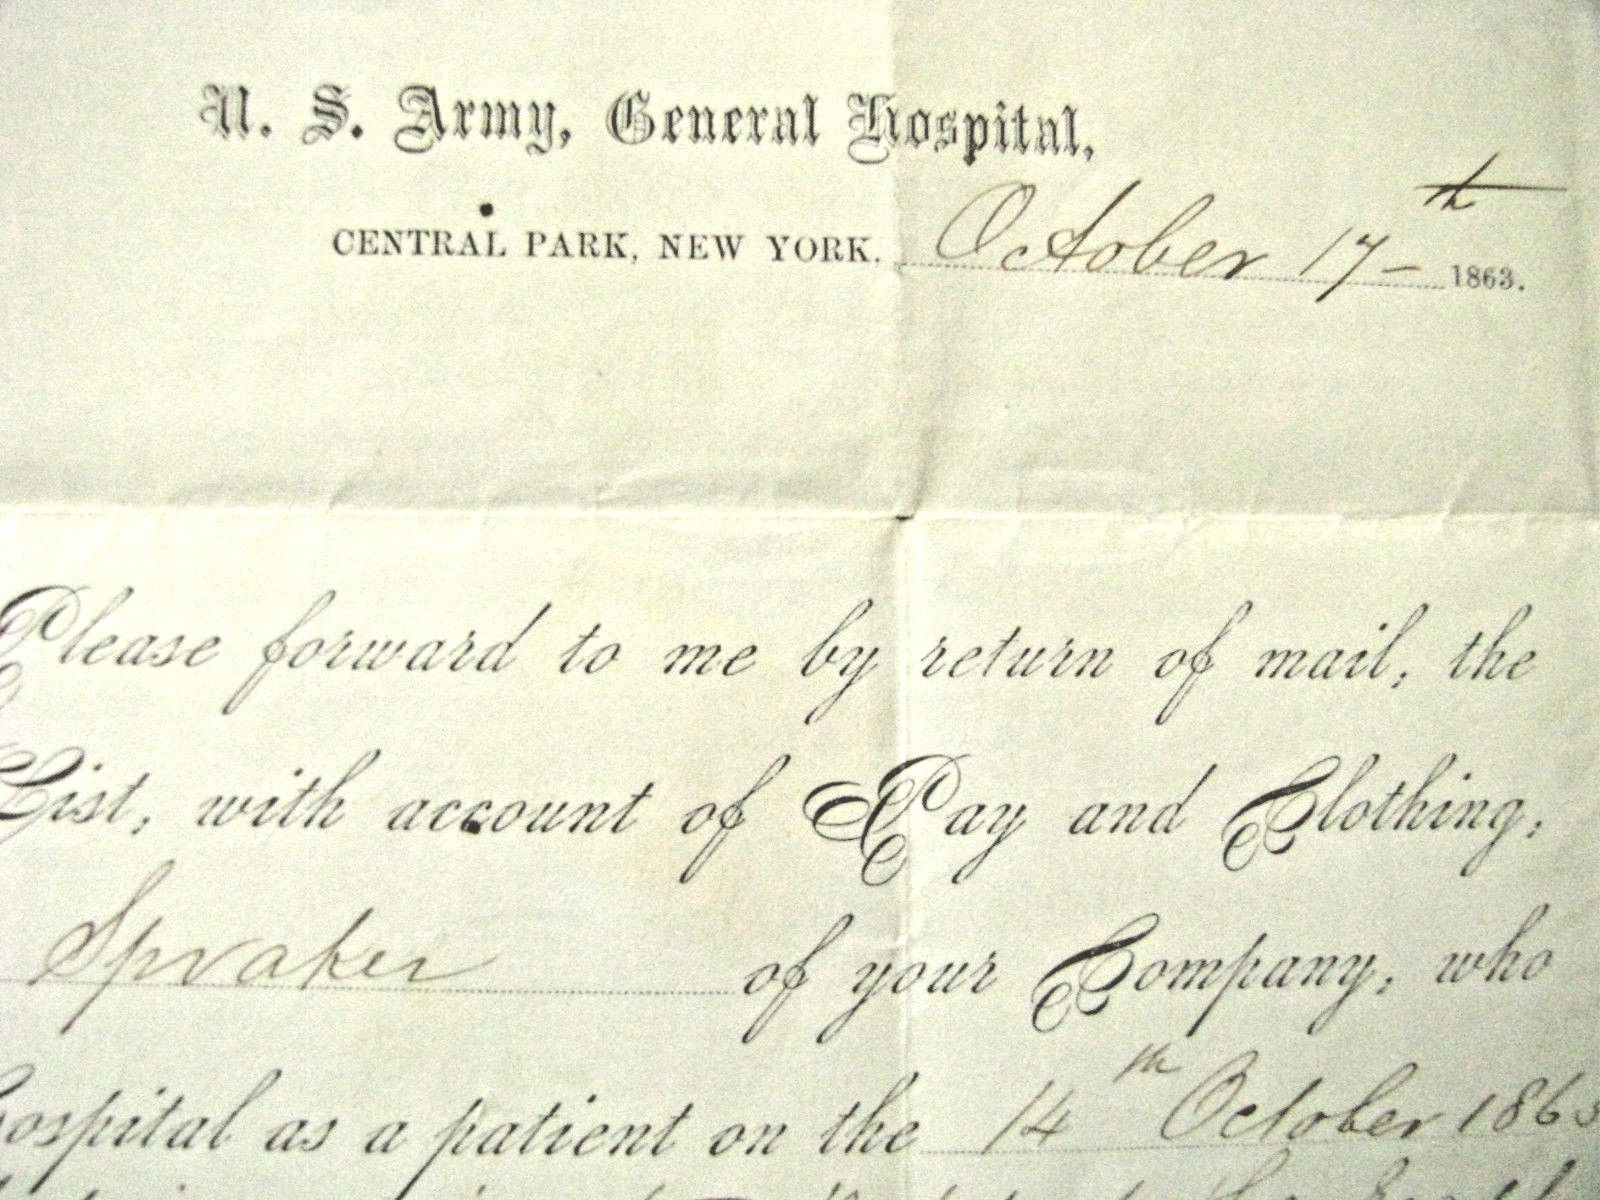 U. S. Army, General Hospital,
CENTRAL PARK, NEW YORK. October 17th 1863.
Please forward to me by return of mail, the
List, with account of Pay and Clothing,
Spraker of your Company, who
hospital as a patient on the 14th October 1863